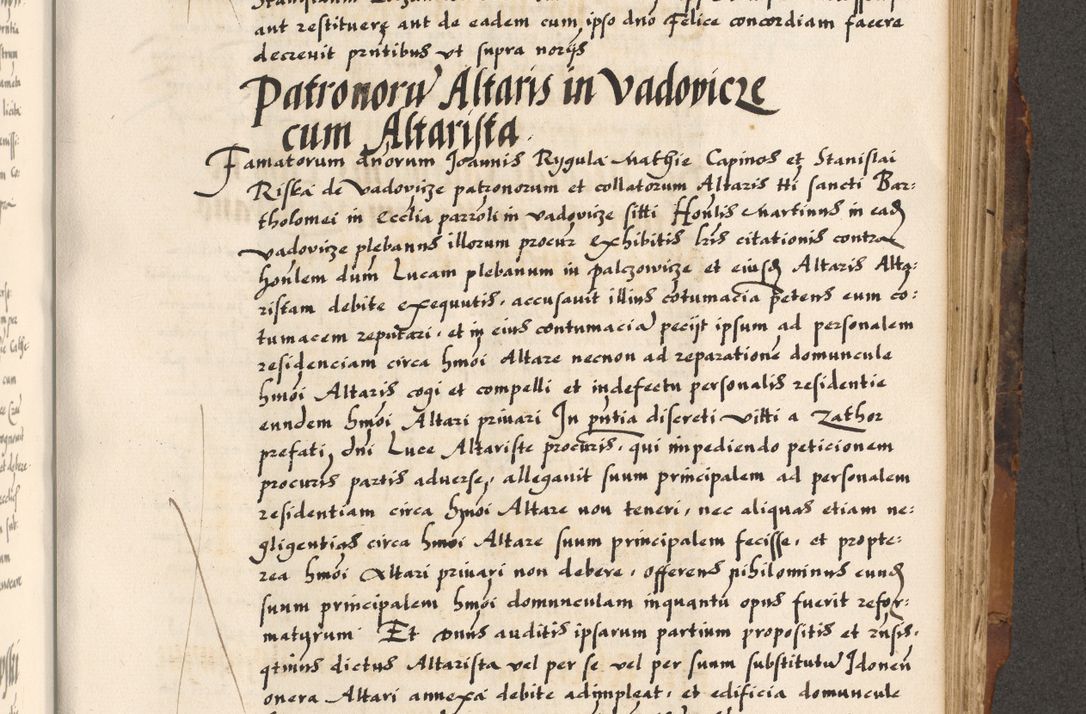 aut restituere aut de eadem cum ipso dno Felice concordiam facere
decrevit pntibus ut supra norijs
Patronoru Altaris in Vadovicze
cum Altarista
Famatorum dnorum Joannis Rygula Mathie Capinos et Stanislai
Riska de Vadovicze patronorum et collatorum Altaris tti sancti Bar:
tholomei in Ecclia parroli in Vadovicze sitti Honlis Martinus in ead
Vadovicze plebanus illorum procur exhibitis lris citationis contra
honlem dum Lucam plebanum in palczowicze et eiusd Altaris Alta:
ristam debite exequutis, accusavit illius cotumacia petens eum co:
tumacem reputari, et in eius contumacia pecijt ipsum ad personalem
residenciam circa hmoi Altare necnon ad reparatione domuncule
hmoi Altaris cogi et compelli et indefectu personalis residentie
eundem hmoi Altari privari In pntia discreti Vitti a Zathor
prefati dni Luce Altariste procuris, qui impediendo peticionem
procuris partis adverse, allegavit suum principalem ad personalem
residentiam circa hmoi Altare non teneri, nec aliquas etiam ne:
gligentias circa hmoi Altare suum principalem fecisse, et propte:
rea hmoi Altari privari non debere, offerens nihilominus eund
suum principalem hmoi domunculam inquantu opus fuerit refor:
maturum Et Dnus auditis ipsarum partium propositis et
qtinus dictus Altarista vel per se vel per suum substitutu Idoneu
onera Altari annexa debite adimpleat, et edificia domuncule